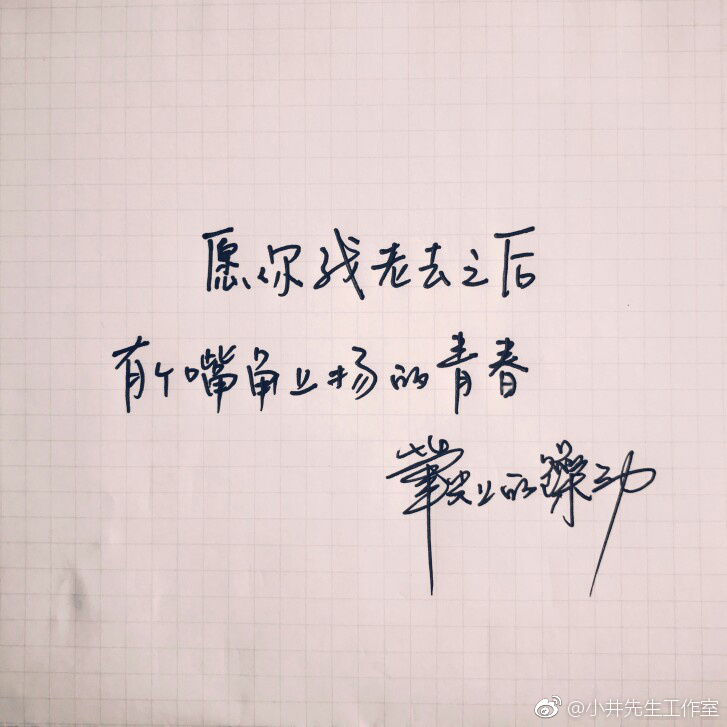 愿你我老去之后
有个嘴角上扬的青春
笔尖上的躁动
@小井先生工作室